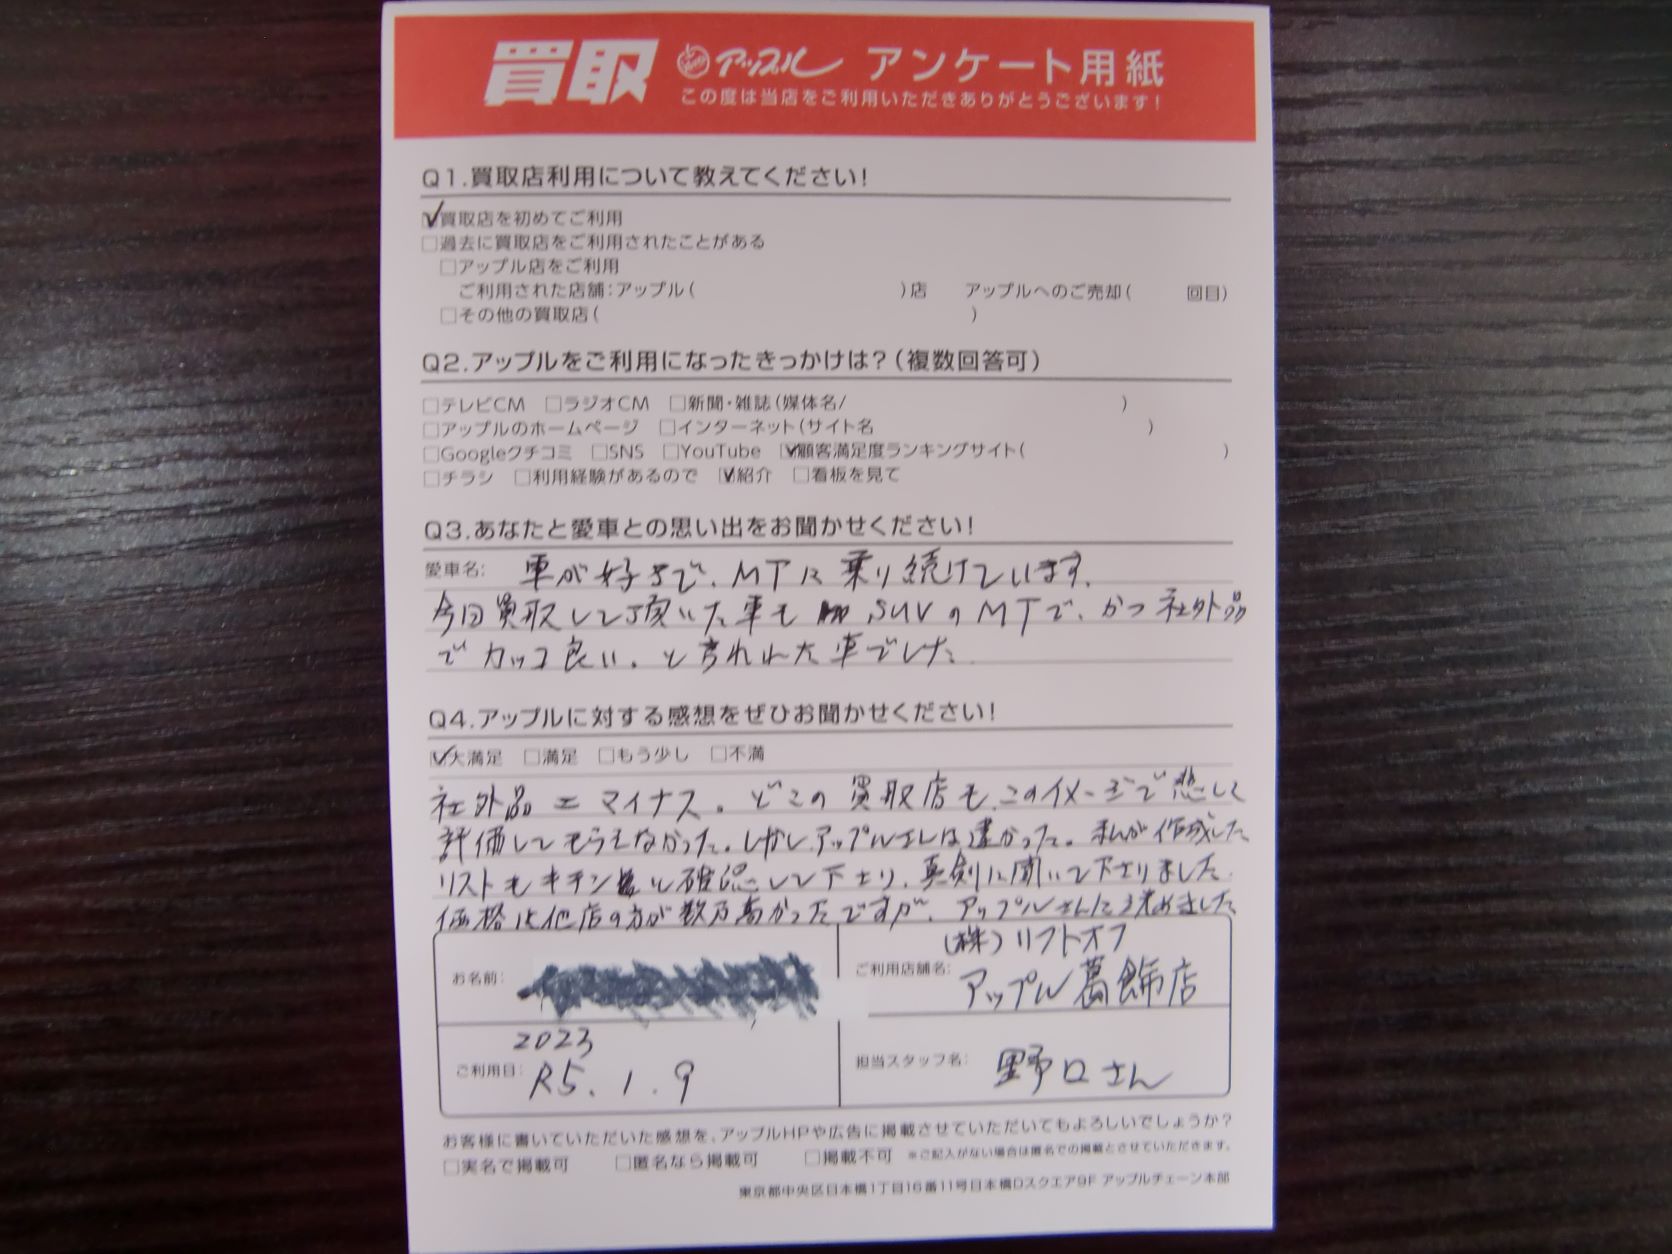 買取 アップル アンケート用紙
この度は当店をご利用いただきありがとうございます!
Q1.買取店利用について教えてください!
買取店を初めてご利用
□過去に買取店をご利用されたことがある
□アップル店をご利用
ご利用された店舗:アップル( )店 アップルへのご売却( 回目)
□その他の買取店( )
Q2.アップルをご利用になったきっかけは?(複数回答可)
□テレビCM □ラジオCM □新聞・雑誌(媒体名/ )
□アップルのホームページ □インターネット(サイト名 )
□Googleクチコミ □SNS □YouTube ☑顧客満足度ランキングサイト( )
□チラシ □利用経験があるので ☑紹介 □看板を見て
Q3.あなたと愛車との思い出をお聞かせください!
愛車名: 車が好きで、MTに乗り続けています。
今回買取して頂いた車も SUVのMTで、かつ社外品
でカッコ良い。と言われた車でした。
Q4.アップルに対する感想をぜひお聞かせください!
☑大満足 □満足 □もう少し □不満
社外品=マイナス。どこの買取店も、このイメージで悲しく
評価してもらえなかった。しかし、アップルさんは違かった。私が作成した
リストもキチンと確認して下さり、真剣に聞いて下さりました。
価格は他店の方が数万高かったですが、アップルさんに決めました
お名前:
(株)リフトオフ
ご利用店舗名: アップル葛飾店
2023
ご利用日: R5.1.9
担当スタッフ名: 野口さん
お客様に書いていただいた感想を、アップルHPや広告に掲載させていただいてもよろしいでしょうか?
□実名で掲載可 □匿名なら掲載可 □掲載不可 ※ご記入がない場合は匿名での掲載とさせていただきます。
東京都中央区日本橋1丁目16番11号日本橋Dスクエア9F アップルチェーン本部